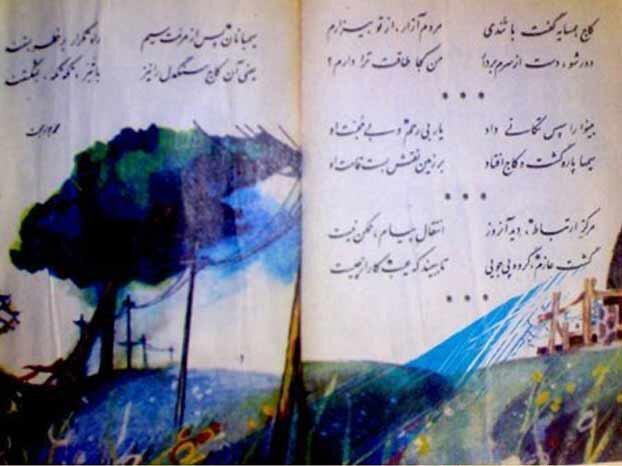 کاج همسایه گفت با تندی مردم آزار ، از تو بیزارم
دور شو ، دست از سرم بردار من کجا طاقت ترا دارم ؟
* * *
بینوا را سپس تکانی داد یار بی رحم و بی محبت او
سیمها پاره گشت و کاج افتاد بر زمین نقش بست قامت او
* * *
مرکز ارتباط ، دید آن روز انتقال پیام ، ممکن نیست
گشت عازم ، گروه پی جویی تا ببیند که عیب کار از چیست
* * *
سیمبانان پس از مرمت سیم راه تکرار بر خطر بستند
یعنی آن کاج سنگدل را نیز با تبر ، تکه تکه ، بشکستند
محمد جواد محبت